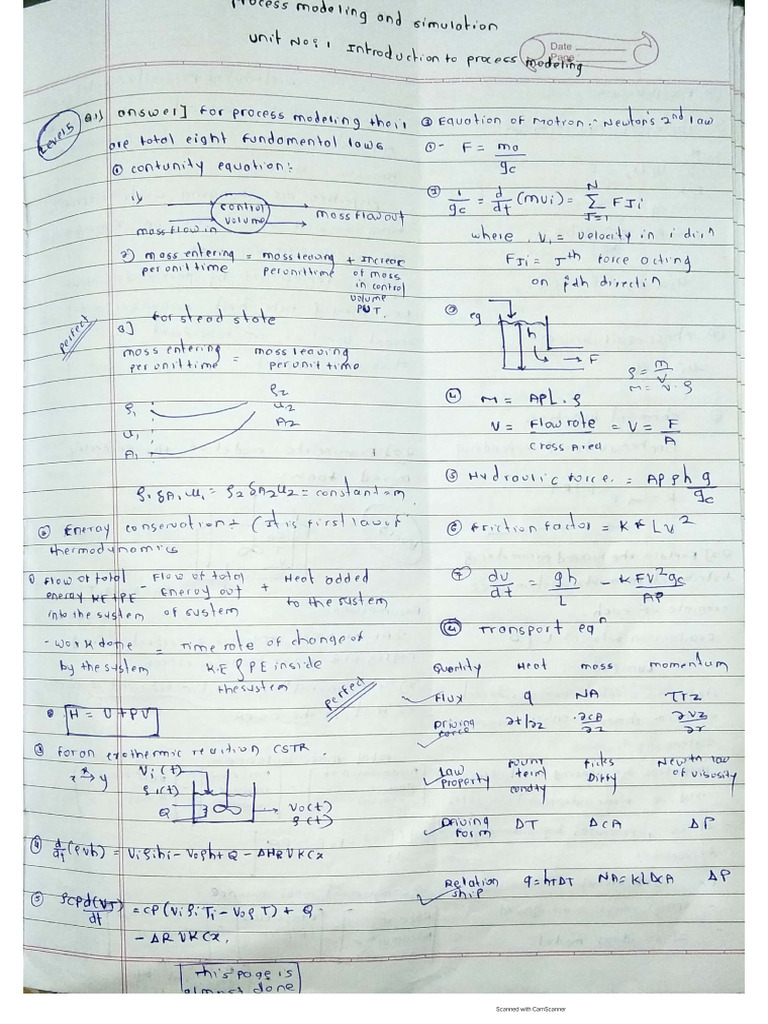 process modeling and simulation
Unit No: 1 Introduction to process modeling
Date
Page
Level 5
Q.1) answer] for process modeling their
are total eight fundamental laws
① contunity equation:
1)
control volume
mass flow in
mass flow out
2) mass entering per unit time = mass leaving per unit time + increase of mass in control volume PUT.
perfect
3] for stead state
mass entering per unit time = mass leaving per unit time
ρ1
u1
A1
ρ2
u2
A2
ρ1 δA1 u1 = ρ2 δA2 u2 = constant = m
② Energy conservation: (It is first law of
thermodynamics
① Flow of total energy KE + PE into the system - Flow of total Energy out of system + Heat added to the system
- work done by the system = Time rate of change of K.E & PE inside the system
perfect
H = U + PV
③ for an exothermic reaction CSTR.
x → y
Vi(t)
ρi(t)
Q
Vo(t)
ρ(t)
④ d/dt (ρVh) = Viρihi - Voρh + Q - ΔHRVKCx
⑤ ρCP d(VT)/dt = CP (Vi ρi Ti - Vo ρ T) + Q
- ΔR VKCx.
This page is
almost done
③ Equation of Motron: - Newton's 2nd law
①- F = ma/gc
② 1/gc = d/dt (mvi) = Σ N J=1 FJi
where, Vi = velocity in i dirn
FJi = Jth force acting
on jdh directin
③ eg
h
F
ρ = m/V
m = V · ρ
④ M = APL · ρ
V = Flow rate/Cross Area = V = F/A
⑤ Hydraulic force. = AP ρh g/gc
⑥ friction factor = KFLV²
⑦ dv/dt = gh/L - KFV²gc/AP
④ Transport eqn
Quantity Heat mass momentum
Flux q NA Trz
Driving force ∂t/∂z ∂CA/∂z ∂VZ/∂r
Law Property ficks Newtn law of viscosity
Driving form ΔT ΔCA ΔP
Relation ship q = hTΔT NA = KLΔCA ΔP
Scanned with CamScanner